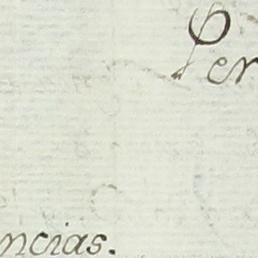 Per
ncias.